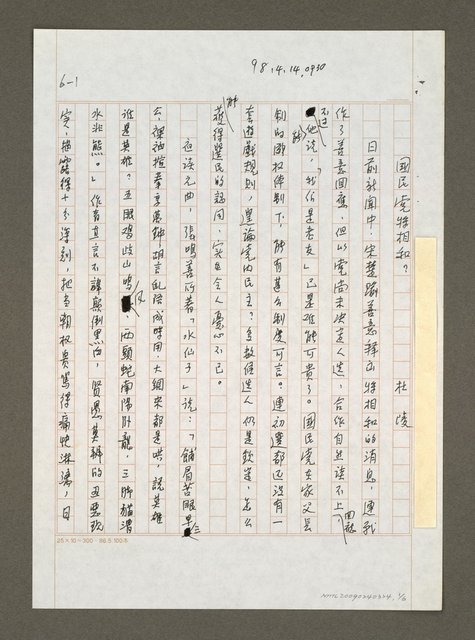 98.4.14.0930
6-1
國民黨特相和?
杜陵
日前新聞中,宋楚瑜善意釋出特相和的消息,連戰
作了善意回應,但以黨尚未決定人選,合作自然談不上
回話
不過他說,「我們是老友」已是難能可貴了。國民黨在家父長
制的威權體制下,能有甚麼制度可言。連初選都還沒有一
套遊戲規則,遑論黨內民主?多數候選人仍是欽定,怎么
能獲得選民的認同,實在令人憂心不已。
夜讀元曲,張鳴善所著「水仙子」說:「鋪眉苫眼早三
公,裸袖揎拳享萬鍾,胡言亂語成時用,大綱來都是哄,說英雄
誰是英雄?五眼鷄岐山鳴鳳,兩頭蛇南陽臥龍,三脚貓渭
水非熊。」作者直言不諱顛倒黑白,賢愚莫辨的
實,描寫得十分深刻,把當朝權貴罵得痛快淋漓,日
25×10=300·86.5.100本
NMTL20090240324, 1/6